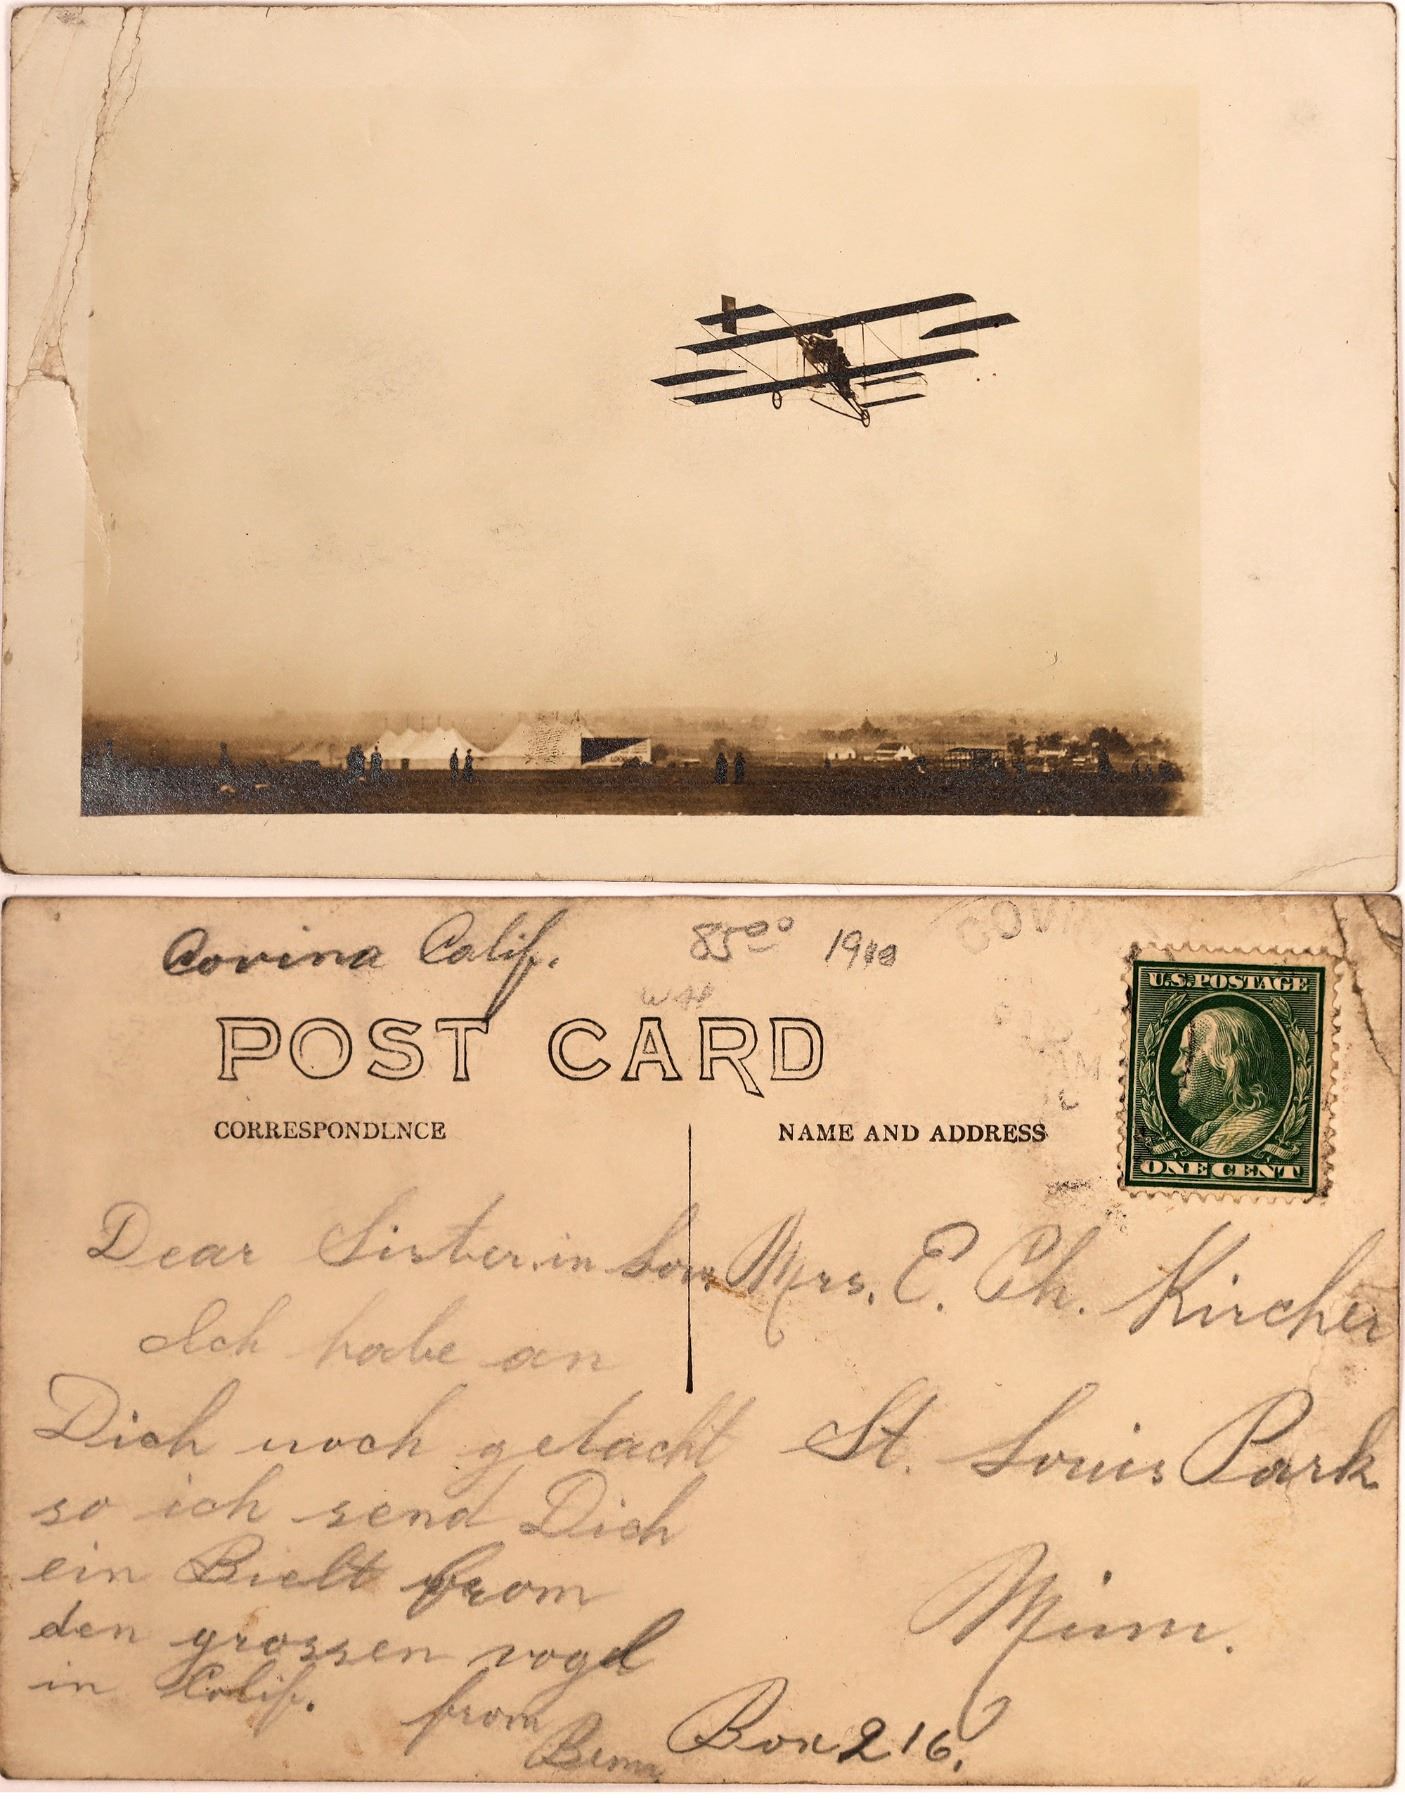 Covina Calif.
85⁰⁰ 1910
COVIN
AM
U.S. POSTAGE
ONE CENT
POST CARD
CORRESPONDENCE
NAME AND ADDRESS
Dear Sister in Low.
Ich habe an
Dich noch gedacht
so ich send Dich
ein Bielt from
den grossen vogel
in Calif.
from
Mrs. E. Ch. Kircher
St. Louis Park
Minn.
Box 216.